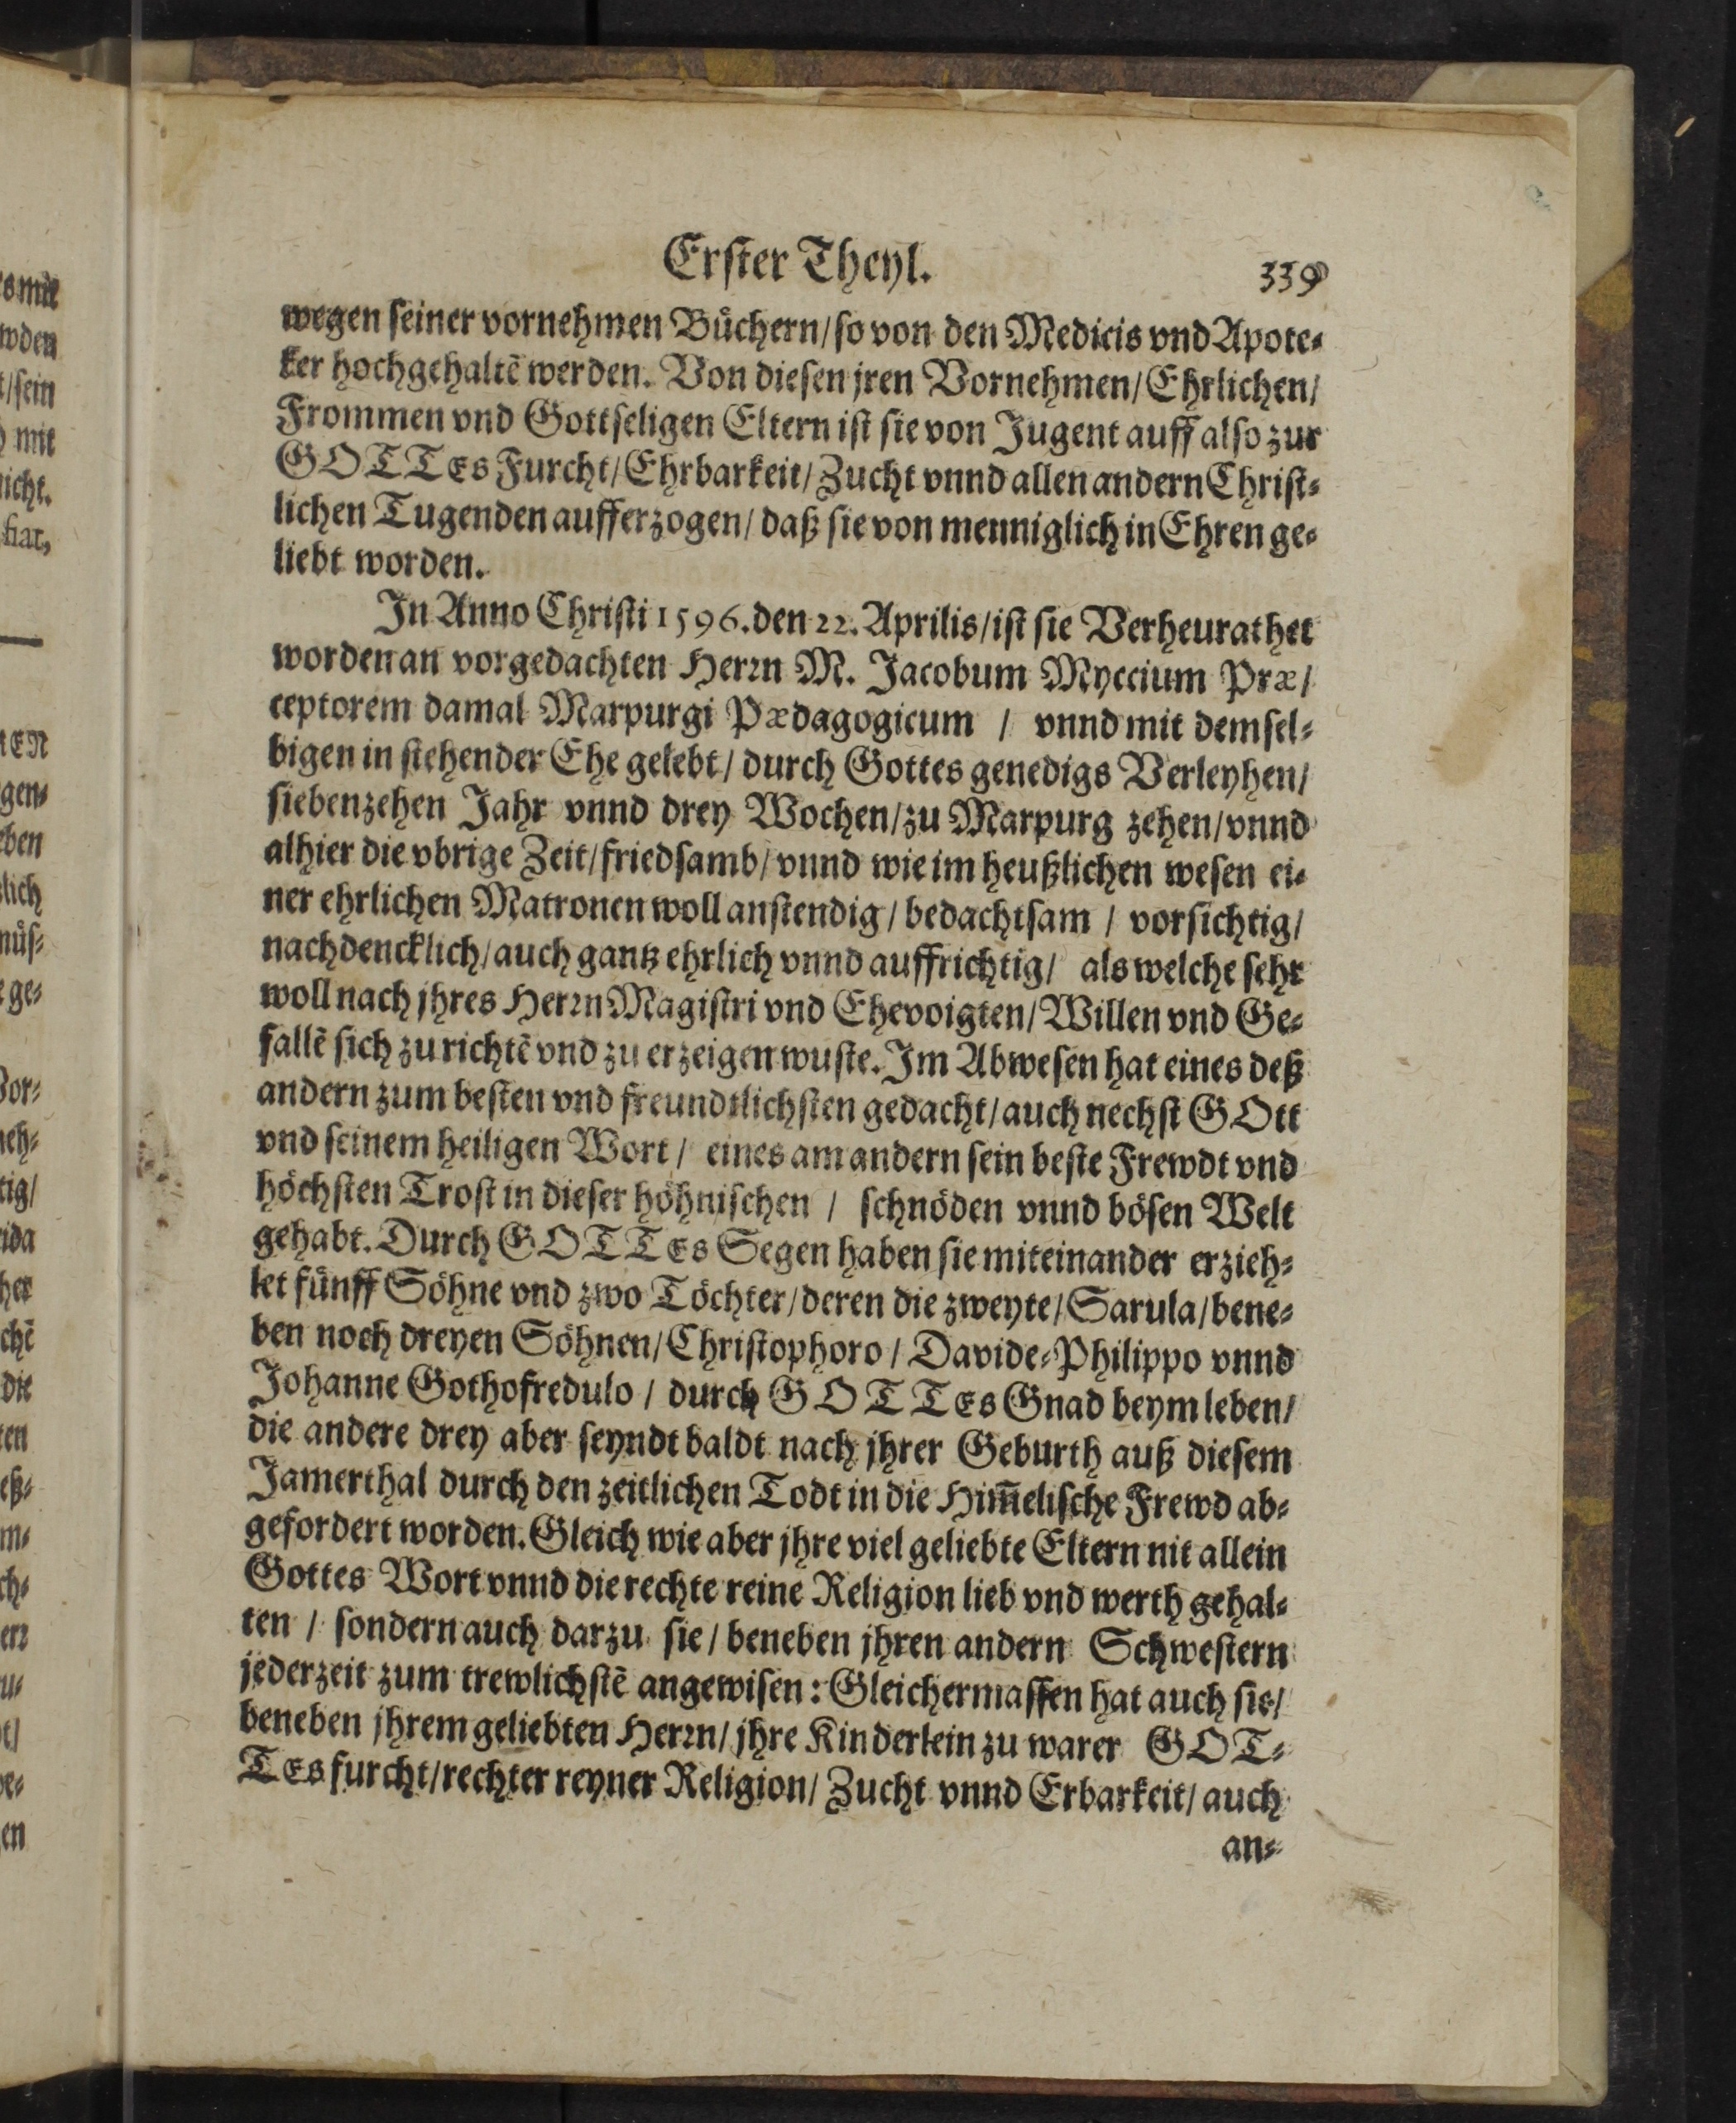 Erster Theyl. 339
wegen seiner vornehmen Bůchern/so von den Medicis vnd Apote-
ker hochgehaltẽ werden. Von diesen jren Vornehmen/Ehrlichen/
Frommen vnd Gottseligen Eltern ist sie von Jugent auff also zur
GOTTEs Furcht/Ehrbarkeit/Zucht vnnd allen andern Christ-
lichen Tugenden aufferzogen/daß sie von menniglich in Ehren ge-
liebt worden.
In Anno Christi 1596.den 22.Aprilis/ist sie Verheurathet
worden an vorgedachten Herrn M. Jacobum Myccium Præ/
ceptorem damal Marpurgi Pædagogicum / vnnd mit demsel-
bigen in stehender Ehe gelebt/durch Gottes genedigs Verleyhen/
siebenzehen Jahr vnnd drey Wochen/zu Marpurg zehen/vnnd
alhier die vbrige Zeit/friedsamb/vnnd wie im heußlichen wesen ei-
ner ehrlichen Matronen woll anstendig/bedachtsam / vorsichtig/
nachdencklich/auch gantz ehrlich vnnd auffrichtig/ als welche sehr
woll nach jhres Herrn Magistri vnd Ehevoigten/Willen vnd Ge-
fallẽ sich zu richtẽ vnd zu erzeigen wuste.Im Abwesen hat eines deß
andern zum besten vnd freundtlichsten gedacht/auch nechst GOtt
vnd seinem heiligen Wort/ eines am andern sein beste Frewdt vnd
hŏchsten Trost in dieser hŏhnischen / schnŏden vnnd bŏsen Welt
gehabt.Durch GOTTEs Segen haben sie miteinander erzieh-
let fůnff Sŏhne vnd zwo Tŏchter/deren die zweyte/Sarula/bene-
ben noch dreyen Sŏhnen/Christophoro/ Davide-Philippo vnnd
Johanne Gothofredulo / durch GOTTEs Gnad beym leben/
die andere drey aber seyndt baldt nach jhrer Geburth auß diesem
Jamerthal durch den zeitlichen Todt in die Him̃elische Frewd ab-
gefordert worden.Gleich wie aber jhre viel geliebte Eltern nit allein
Gottes Wort vnnd die rechte reine Religion lieb vnd werth gehal-
ten / sondern auch darzu sie/beneben jhren andern Schwestern
jederzeit zum trewlichstẽ angewisen: Gleichermassen hat auch sie/
beneben jhrem geliebten Herrn/jhre Kinderlein zu warer GOT-
TEs furcht/rechter reyner Religion/Zucht vnnd Erbarkeit/auch
an-